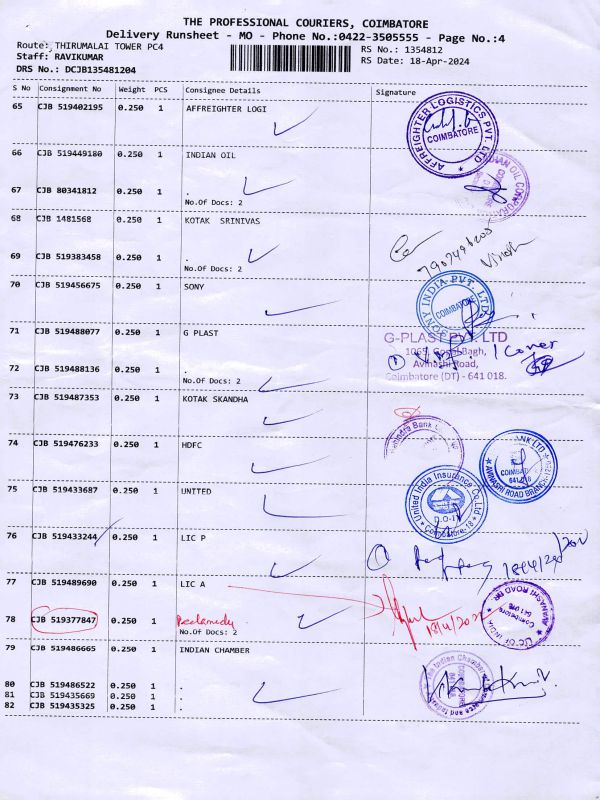 THE PROFESSIONAL COURIERS, COIMBATORE
Delivery Runsheet - MO - Phone No.:0422-3505555 - Page No.:4
Route: THIRUMALAI TOWER PC4
RS No.: 1354812
Staff: RAVIKUMAR
RS Date: 18-Apr-2024
DRS No.: DCJB135481204
S No Consignment No Weight PCS Consignee Details Signature
65 CJB 519402195 0.250 1 AFFREIGHTER LOGI
AFFREIGHTER LOGISTICS PVT. LTD
COIMBATORE
66 CJB 519449180 0.250 1 INDIAN OIL
67 CJB 80341812 0.250 1 .
No.Of Docs: 2
68 CJB 1481568 0.250 1 KOTAK SRINIVAS
69 CJB 519383458 0.250 1 .
No.Of Docs: 2
70 CJB 519456675 0.250 1 SONY
SONY INDIA PVT. LTD.
COIMBATORE
71 CJB 519488077 0.250 1 G PLAST
G-PLAST PVT. LTD
1065, Gopal Bagh,
Avinashi Road,
Coimbatore (DT) - 641 018.
1 Cover
72 CJB 519488136 0.250 1 .
No.Of Docs: 2
73 CJB 519487353 0.250 1 KOTAK SKANDHA
74 CJB 519476233 0.250 1 HDFC
BANK LTD
AVINASHI ROAD BRANCH
641 018
75 CJB 519433687 0.250 1 UNITED
United India Insurance Co.Ltd.
Coimbatore-18
76 CJB 519433244 0.250 1 LIC P
77 CJB 519489690 0.250 1 LIC A
LIC OF INDIA
Coimbatore
641 018
78 CJB 519377847 0.250 1
No.Of Docs: 2
79 CJB 519486665 0.250 1 INDIAN CHAMBER
The Indian Chamber
80 CJB 519486522 0.250 1 .
81 CJB 519435669 0.250 1 .
82 CJB 519435325 0.250 1 .